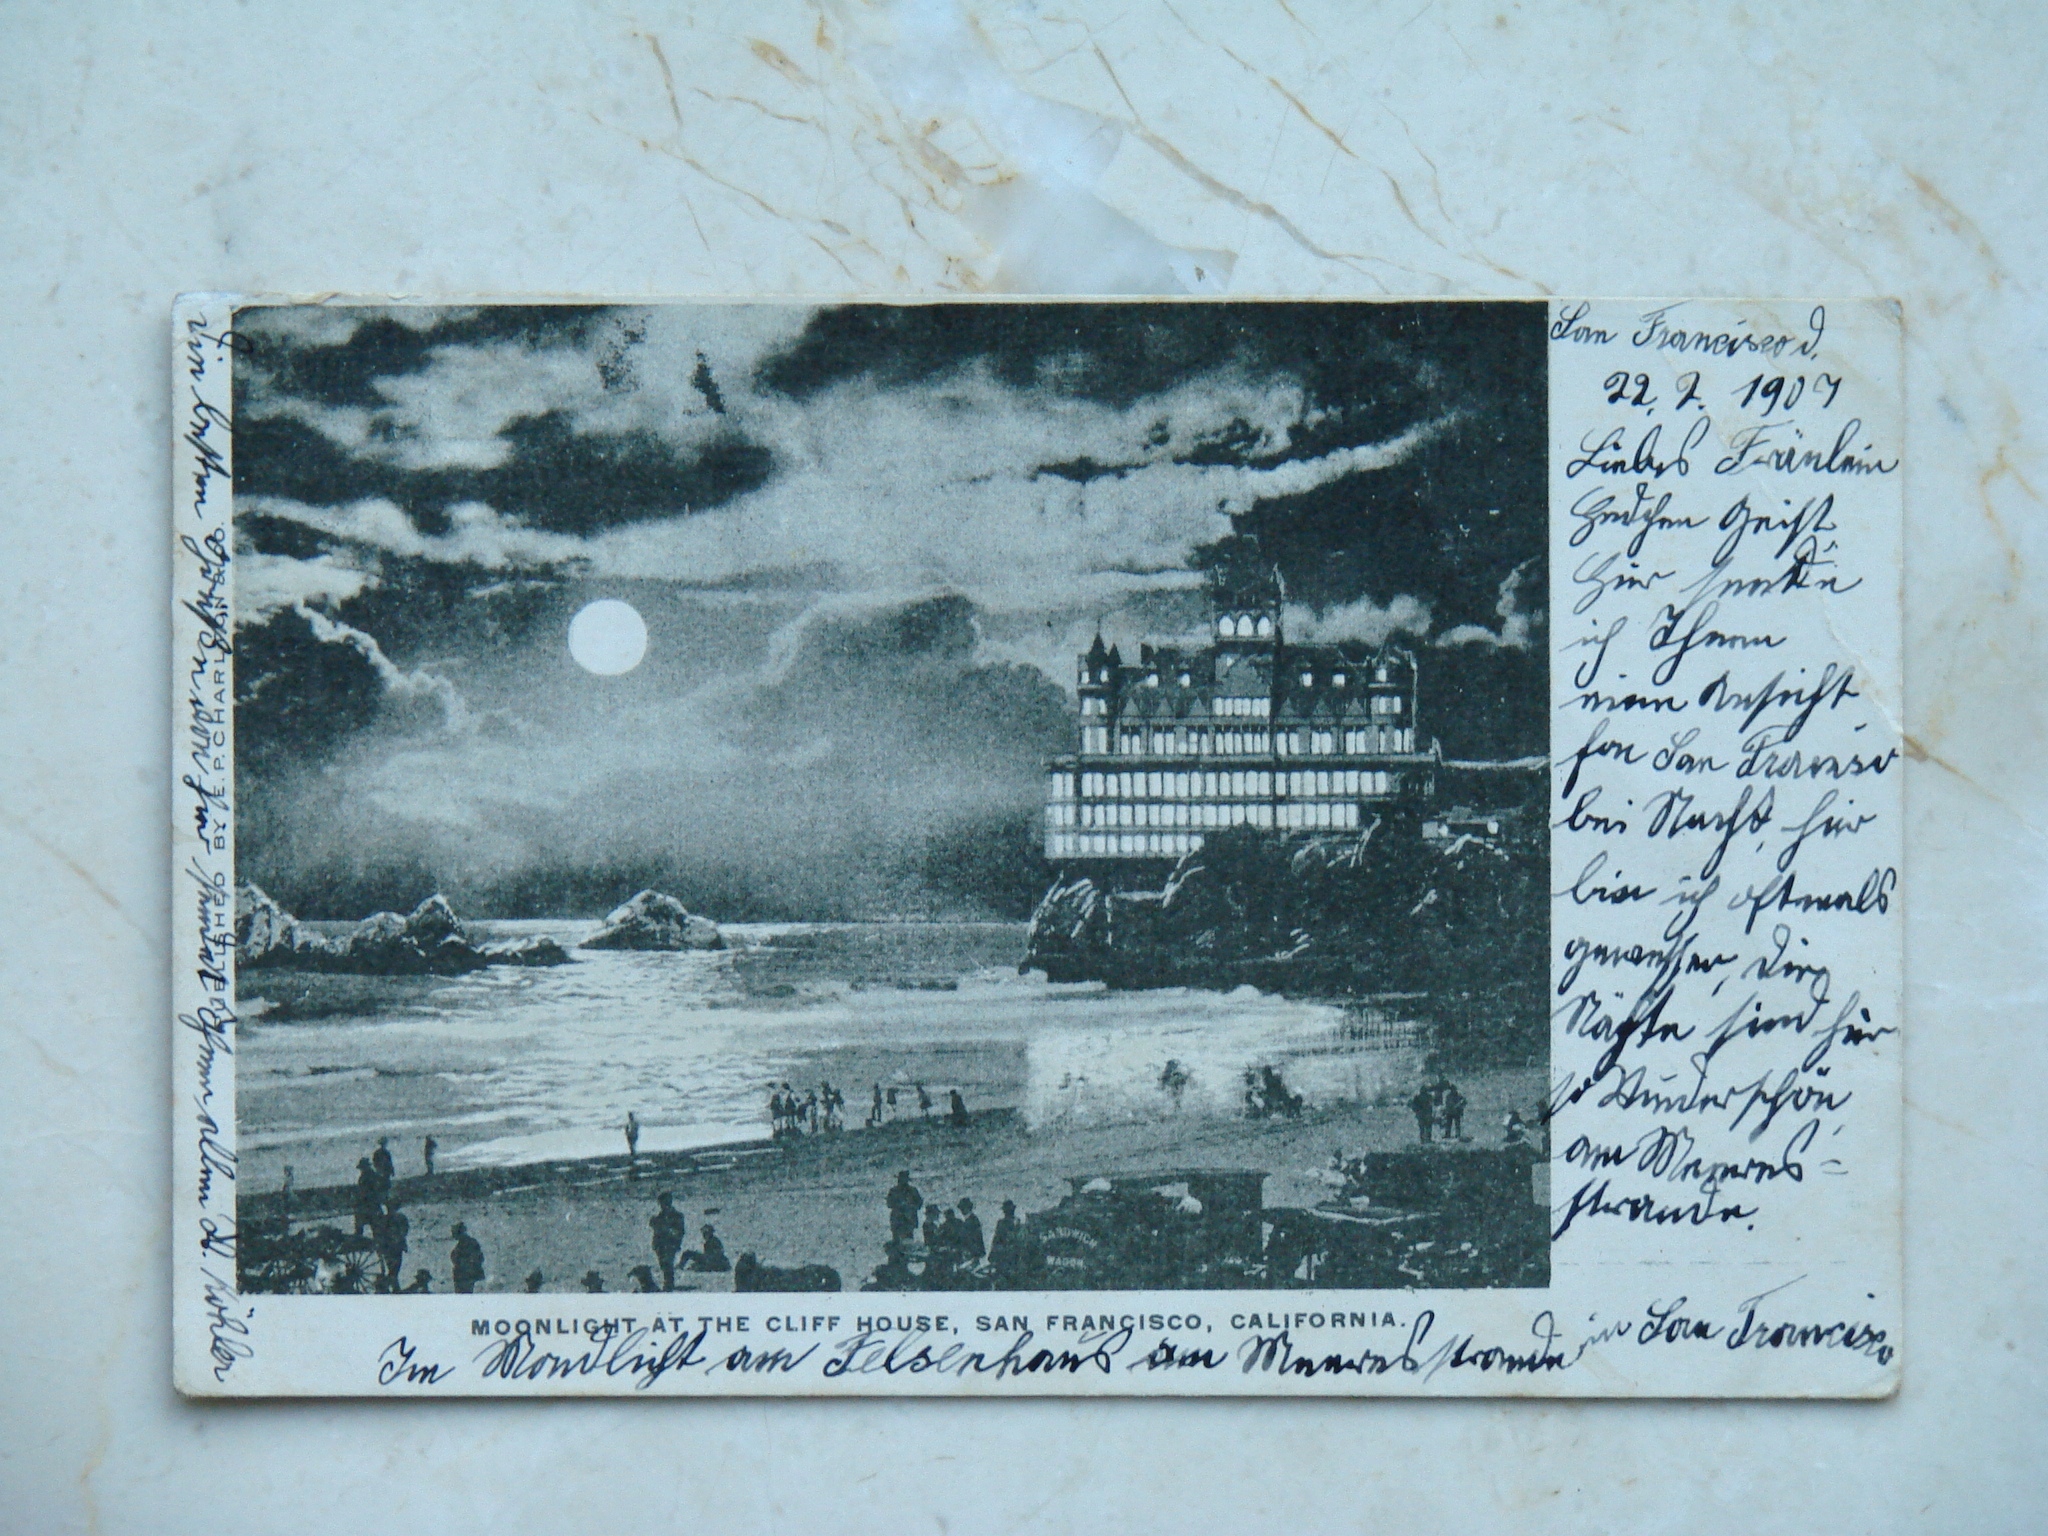 San Francisco d.
22. 2. 1907
Liebes Fräulein
Hedchen Geist.
Hier sende
ich Ihnen
eine Ansicht
fon San Francisco
bei Nacht, hier
bin ich oftmals
gewesser, die
Nächte sind hier
so Wunderschön,
am Meeres=
strande.
MOONLIGHT AT THE CLIFF HOUSE, SAN FRANCISCO, CALIFORNIA.
Im Mondlicht am Felsenhaus am Meeresstrande in San Francisco
PUBLISHED BY E. P. CHARLTON & CO.
Die besten Grüße von hier sendet Ihnen allen A. Köhler
SANDWICH
WAGON